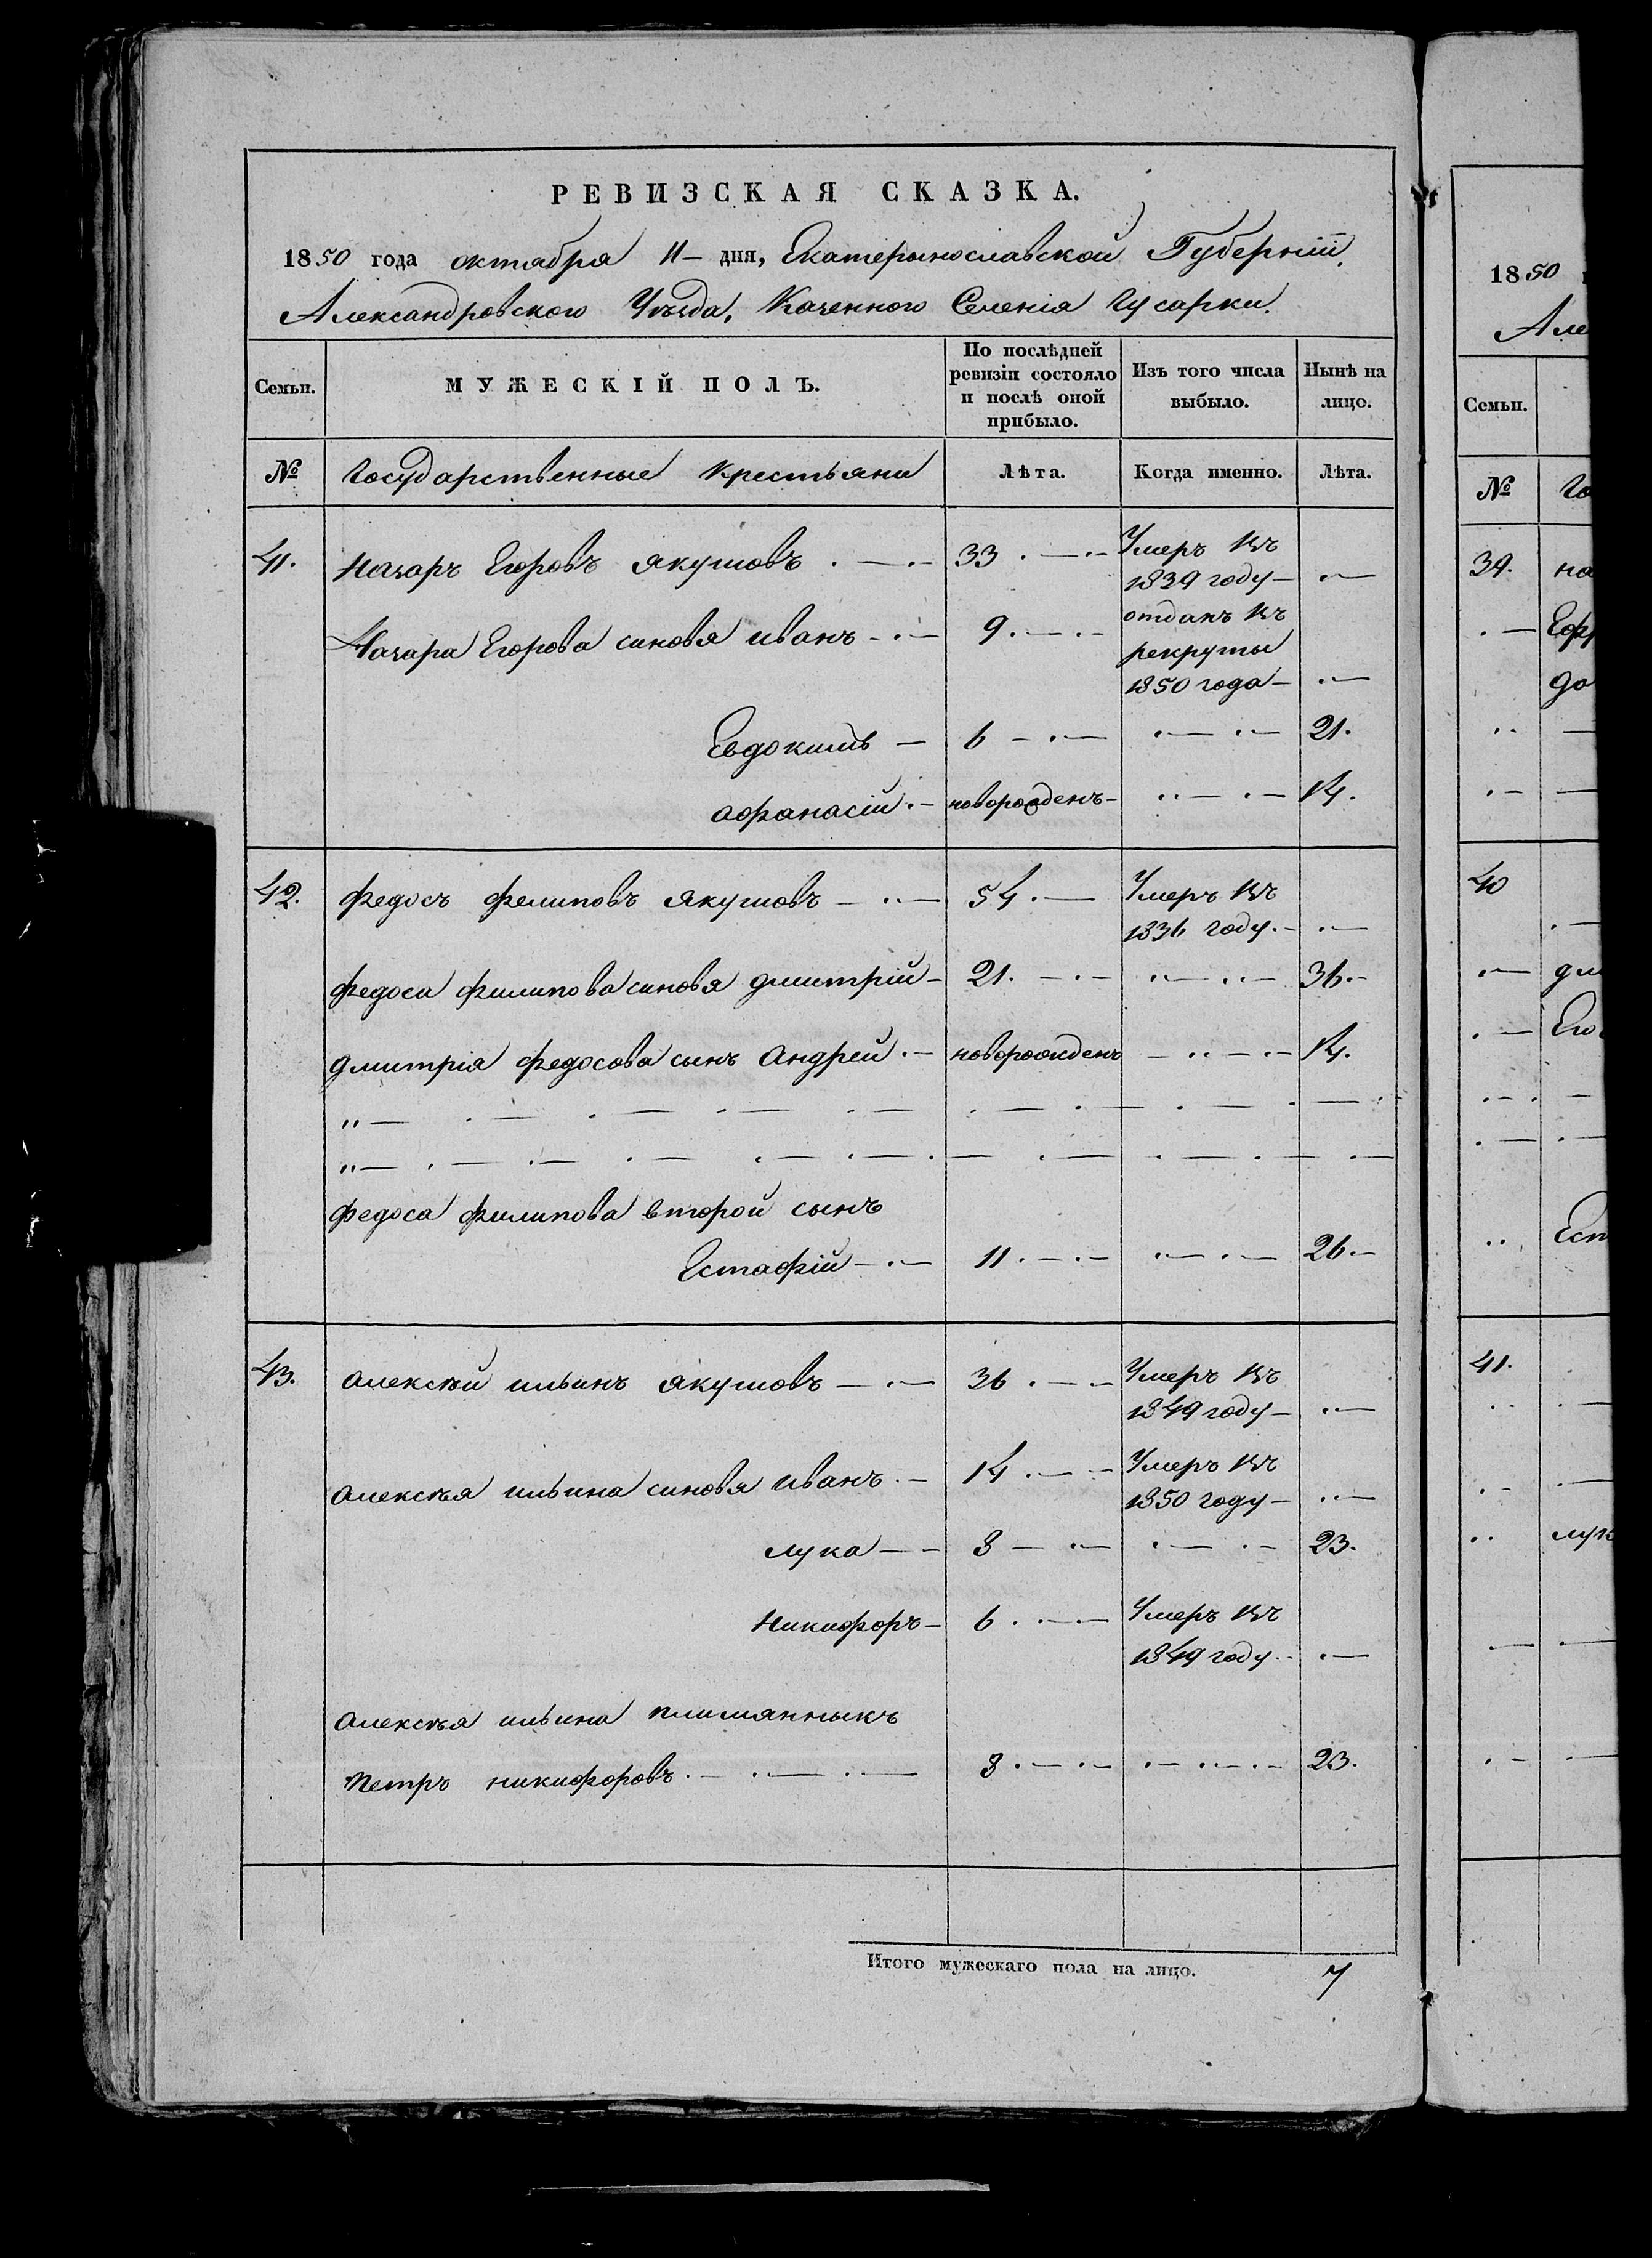 РЕВИЗСКАЯ СКАЗКА.
1850 года октабра 11 – дня, Екатерынославской Губерніи,
Александровского Уезда, Казенного Селенія Гусарки.
Семьи.
МУЖЕСКІЙ ПОЛЪ.
По послѣдней ревизіи состояло и послѣ оной прибыло.
Изъ того числа выбыло.
Нынѣ на лицо.
№
Государственные крестьяни
Лѣта.
Когда именно.
Лѣта.
41. Назаръ Егоровъ Якушовъ 33 Умеръ въ
1839 году
Назара Егорова синовя иванъ 9. отданъ въ
рекруты
1850 года
Евдокимъ 6 21.
афанасій новорожденъ 14.
42. Федосъ Фелиповъ Якушовъ 54. Умеръ въ
1836 году.
Федоса Филипова синовя дмитрій 21. 36.
дмитрія Федосова сынъ Андрей новорожденъ 14.
Федоса Филипова второй сынъ
Естафій 11. 26.
43. алексѣй ильинъ Якушовъ 36. Умеръ въ
1849 году
алексѣя ильина синовя иванъ 14. Умеръ въ
1850 году
лука 8 23.
Никифоръ 6. Умеръ въ
1849 году
алексѣя ильина плимянныкъ
Петръ никифоровъ. 8. 23.
Итого мужескаго пола на лицо. 7
1850
Але
Семьи.
№ Го
39. на
Ефр
до
40
дм
Его
Есп
41.
лук